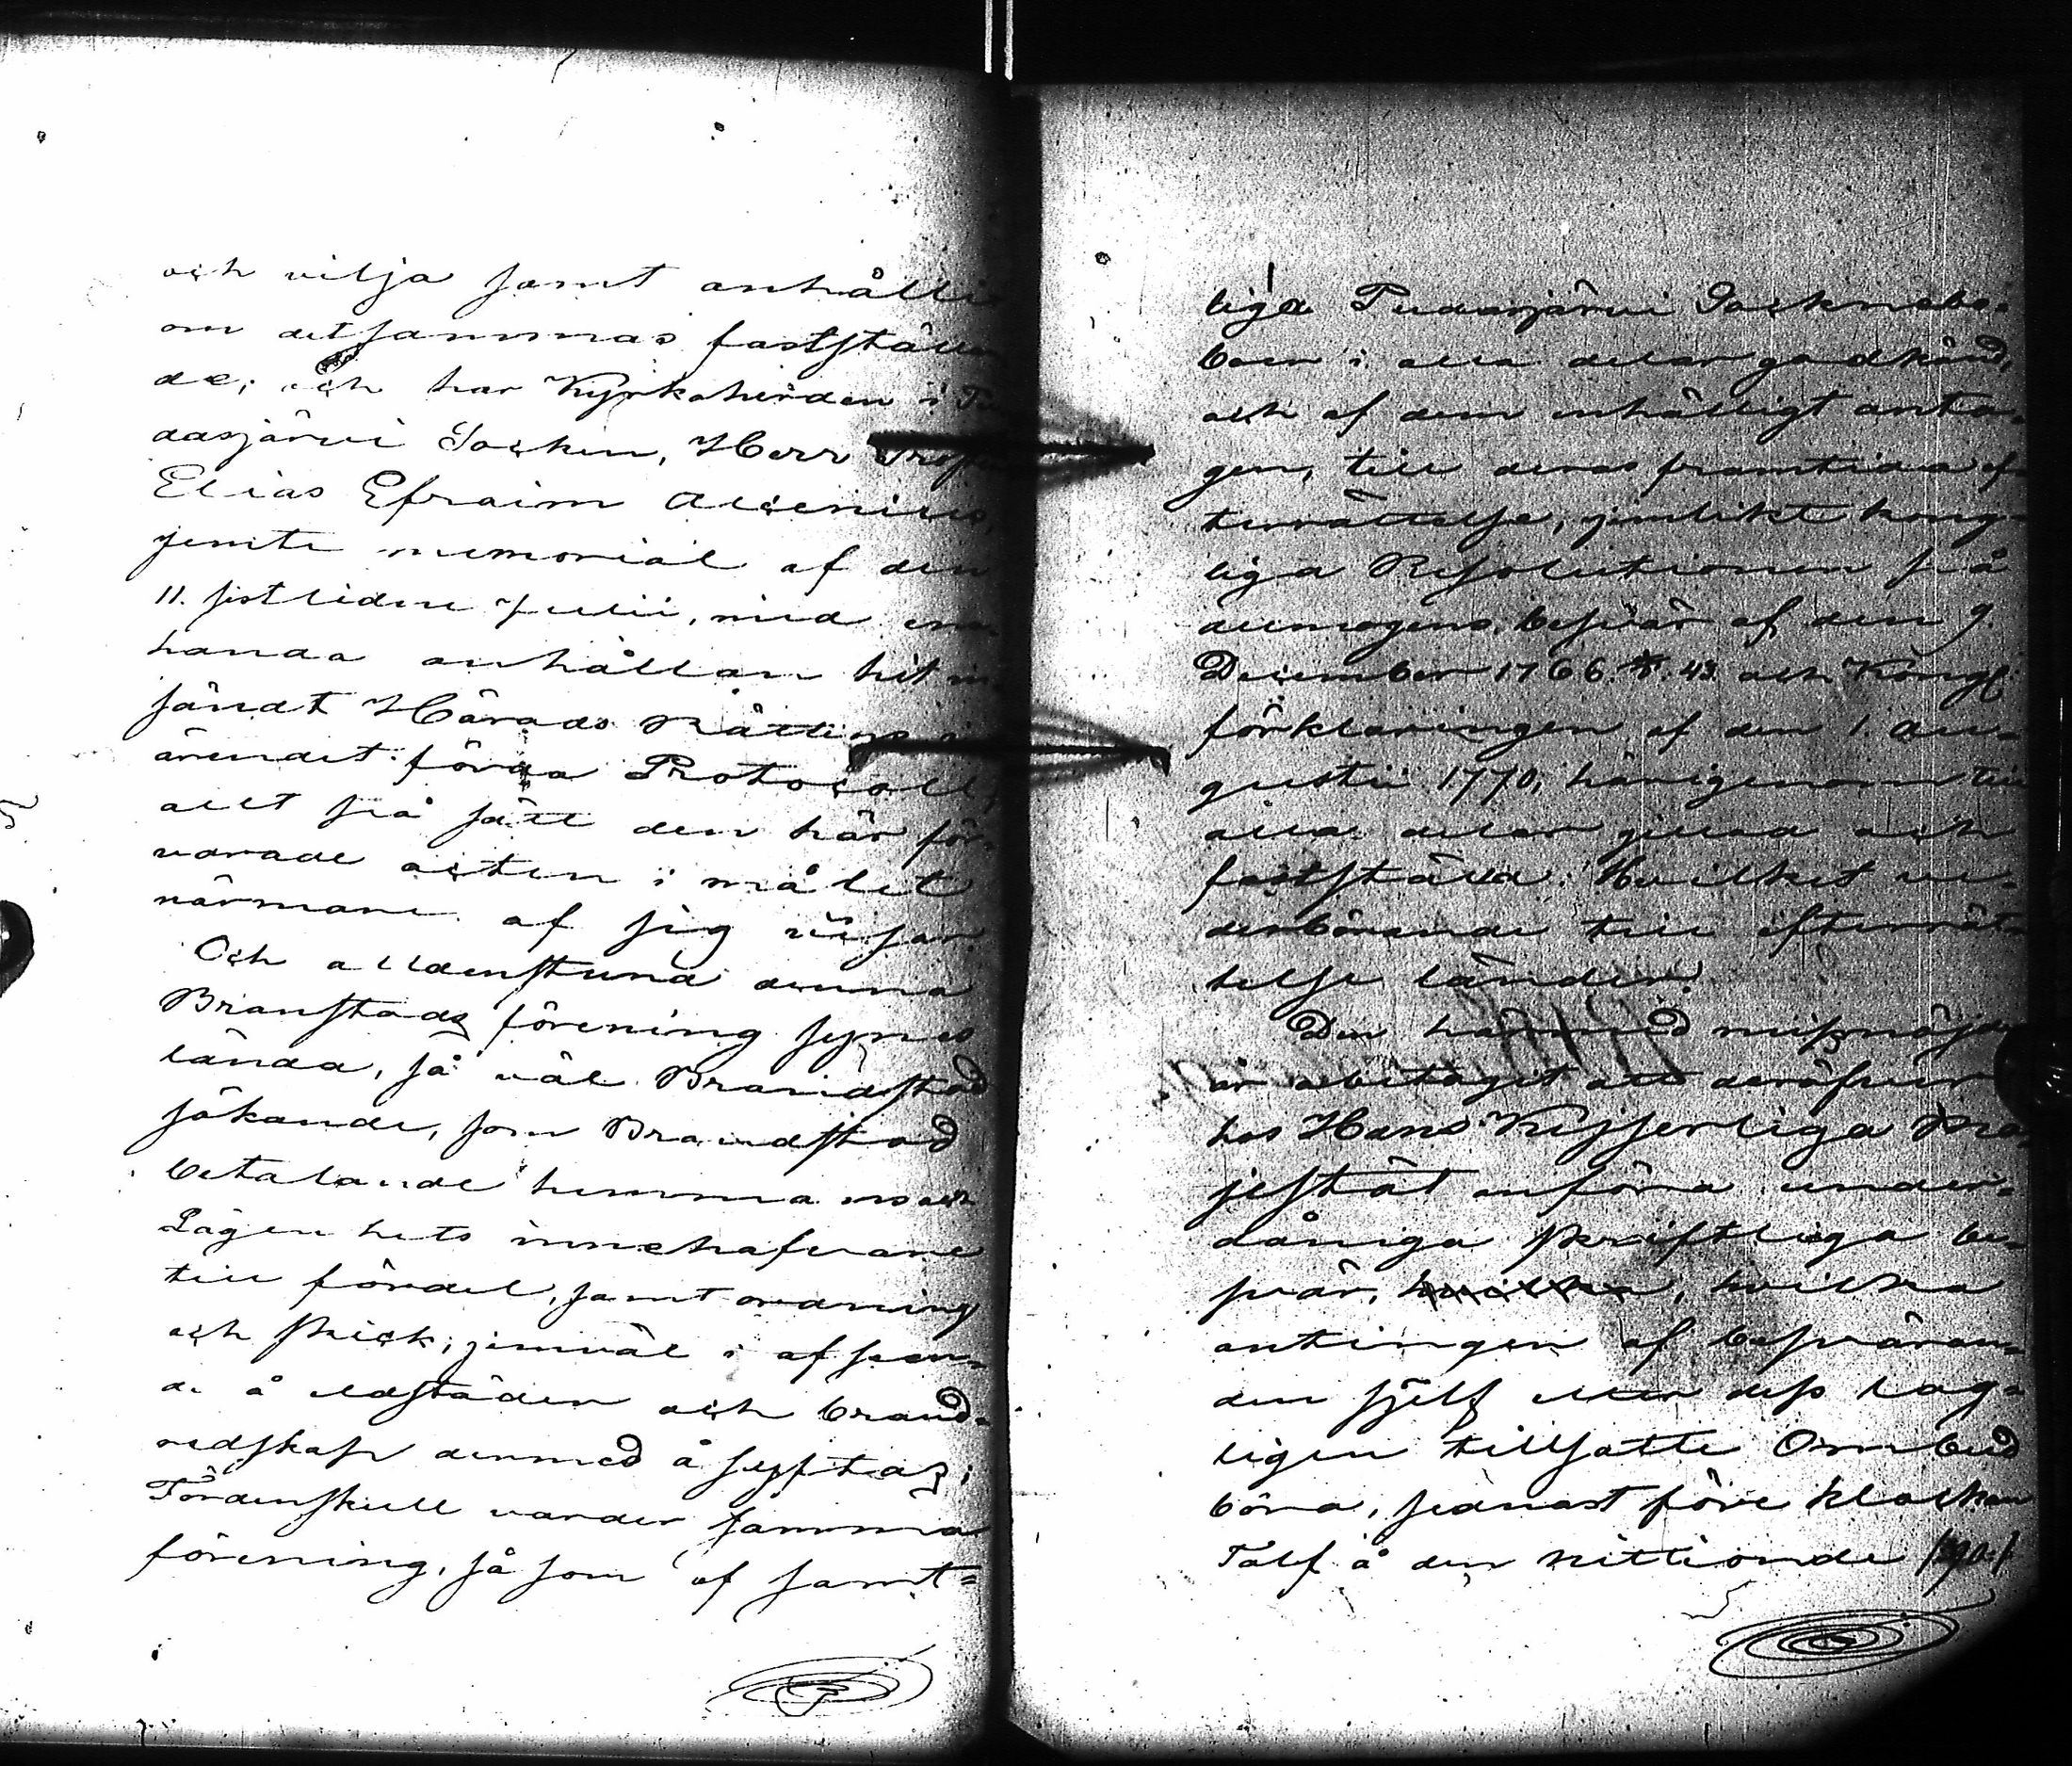 och vilja samt anhållit
om detsammas fastställan
de; och har Kyrkoherden i Pu
dasjärvi Socken, Herr
Elias Efraim Alcenius,
jemte memorial af den
11. sistliden Julii, med ena
handa anhållan hit in
sändt Härads Rättens i
ärendet förda Protocoll,
allt på sätt den här för
varade acten i målet
närmare af sig viser.
Och alldenstund denna
Branstads förening synes
lända, så väl Brandstod
sökande, som Brandstod
betalande hemmans och
Lägenhets innehafvare
till fördel, samt ordning
och skick, jemväl i afseen-
de å eldstäder och brand-
redskap dermed å syftas;
Tördenskull varder samma
förening, så som af samt-
liga Pudasjärvi Socknebo-
boer i alla delar godkänd,
och af dem enhälligt anta-
gen, till deras framtida ef-
terrättelse, jemlikt kong-
liga Resolutionen på
allmogens besvär af den 9.
December 1766. §. 43 och Kongl.
förklaringen af den 1. Au-
gustii 1770, härigenom till
alla delar gillad och
fastställd. Hvilket ve-
derbörande till efterrät-
telse länder.
Den härmed missnöjde
är obetaget att deröfver
hos Hans Kejserliga Ma-
jestät anföra under-
dåniga skriftliga be-
svär, hvilka, hvilka
antingen af besväran-
den sjelf eller dess lag-
ligen tillsatte Ombud
böra, sednast före klockan
Tolf å den nittionde /90/